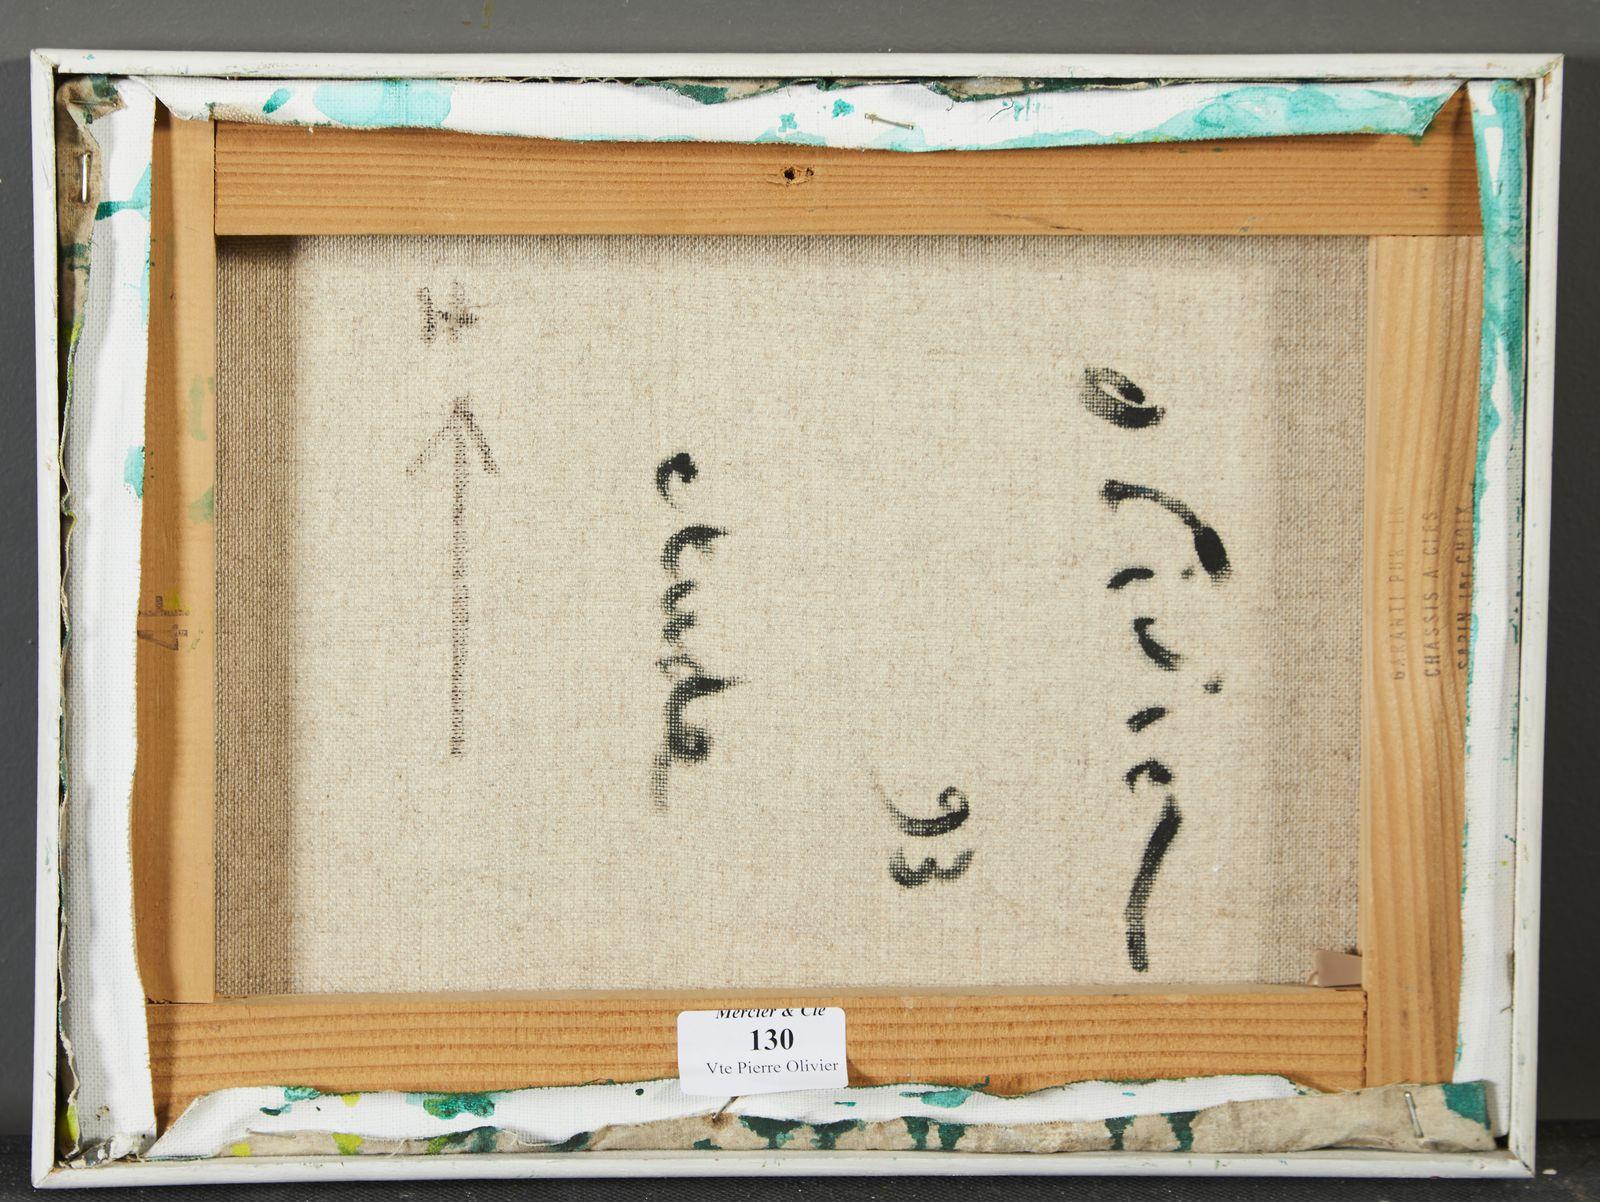 H
Olivier
93
etude
GARANTI PUR LIN
CHASSIS A CLES
SAPIN 1er CHOIX
Mercier & Cie
130
Vte Pierre Olivier